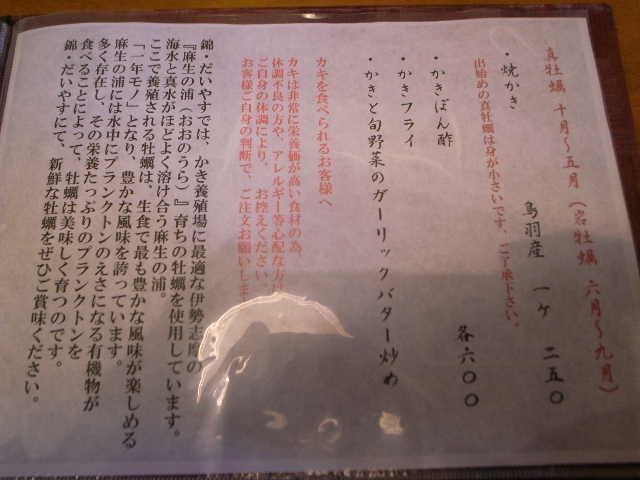 真牡蠣 十月〜五月（岩牡蠣 六月〜九月）
・焼かき 鳥羽産 一ケ 二五〇
出始めの真牡蠣は身が小さいです、ご了承下さい。
・かきぽん酢
・かきフライ 各六〇〇
・かきと旬野菜のガーリックバター炒め
カキを食べられるお客様へ
カキは非常に栄養価が高い食材の為、
体調不良の方や、アレルギー等心配な方は
ご自身の体調により、お控えください。
お客様ご自身の判断で、ご注文お願いします
錦・だいやすでは、かき養殖場に最適な伊勢志摩の
『麻生の浦（おおのうら）』育ちの牡蠣を使用しています。
海水と真水がほどよく溶け合う麻生の浦。
ここで養殖される牡蠣は、生食で最も豊かな風味が楽しめる
「一年モノ」となり、豊かな風味を誇っています。
麻生の浦には水中にプランクトンのえさになる有機物が
多く存在し、その栄養たっぷりのプランクトンを
食べることによって、牡蠣は美味しく育つのです。
錦・だいやすにて、新鮮な牡蠣をぜひご賞味ください。